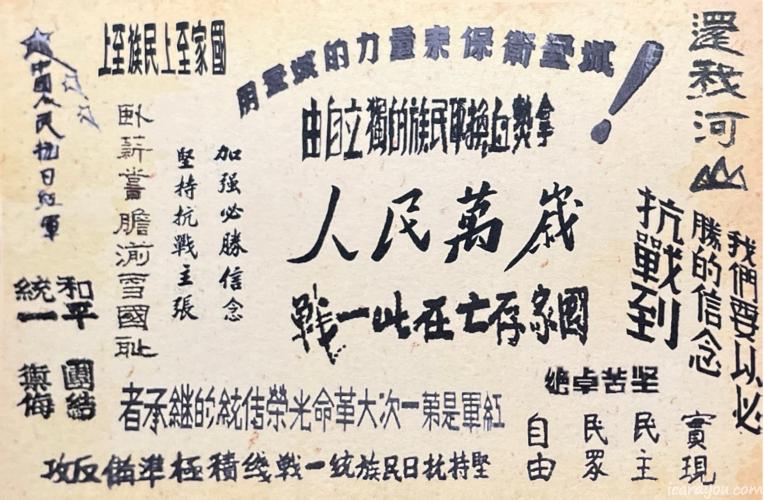 國家至上民族至上
用的力量來保衛
！
還我河山
中國人民抗日紅軍
拿熱血換取民族的獨立自由
臥薪嘗膽湔雪國恥
加强必勝信念
堅持抗戰主張
人民萬歲
國家存亡在此一戰
我們要以必
勝的信念
抗戰到
和平
統一
團結
禦侮
坚苦卓绝
實現
民主
民眾
自由
紅軍是第一次大革命光榮傳統的繼承者
堅持抗日民族統一戰綫積極準備反攻
icardyou.com